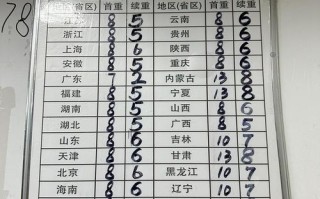 78
地区(省区) 首重 续重 地区(省区) 首重 续重
江苏 8 5 云南 8 6
浙江 8 5 贵州 8 6
上海 8 6 陕西 8 6
安徽 8 5 重庆 8 6
广东 7 2 内蒙古 13 8
福建 8 5 宁夏 13 8
湖南 8 5 山西 8 6
湖北 8 5 广西 8 5
山东 8 6 吉林 10 7
天津 8 6 甘肃 13 8
北京 8 6 黑龙江 10 7
海南 8 6 辽宁 10 7